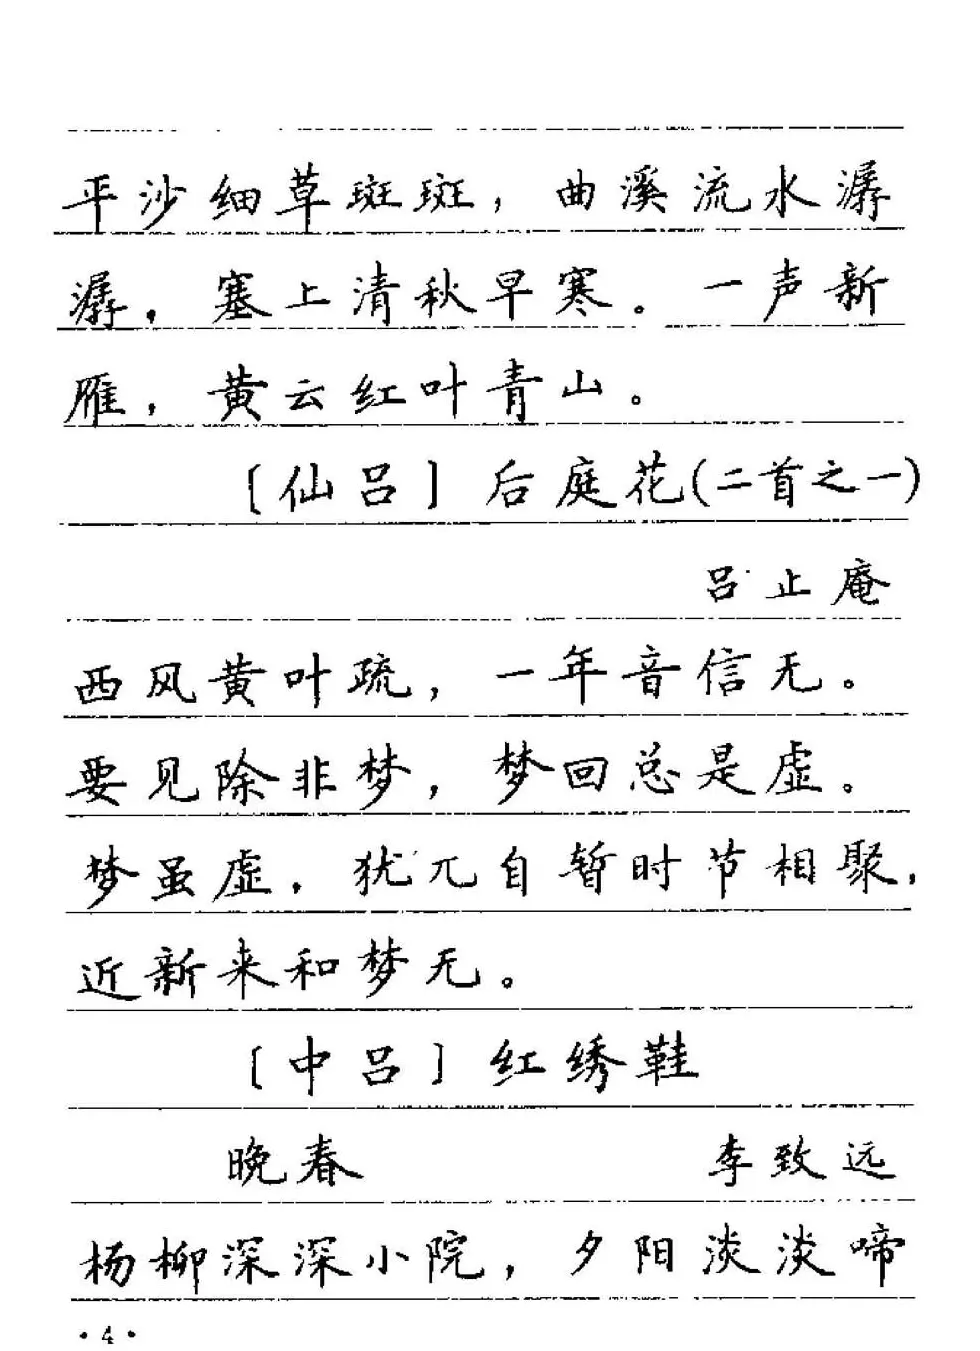 平沙细草斑斑，曲溪流水潺
潺，塞上清秋早寒。一声新
雁，黄云红叶青山。
〔仙吕〕后庭花(二首之一)
吕止庵
西风黄叶疏，一年音信无。
要见除非梦，梦回总是虚。
梦虽虚，犹兀自暂时节相聚，
近新来和梦无。
〔中吕〕红绣鞋
晚春 李致远
杨柳深深小院，夕阳淡淡啼
·4·